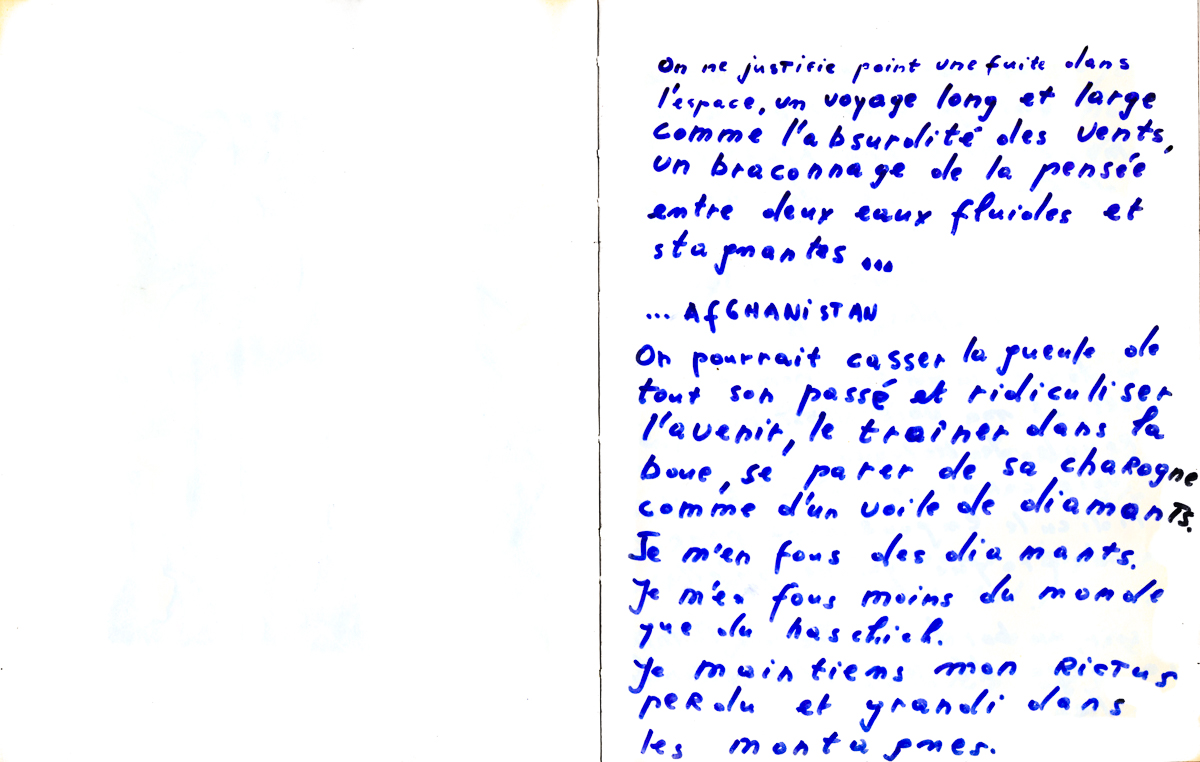 On ne justifie point une fuite dans
l'espace, un voyage long et large
comme l'absurdité des vents,
un braconnage de la pensée
entre deux eaux fluides et
stagnantes...
... AfGHANiSTAN
On pourrait casser la gueule de
tout son passé et ridiculiser
l'avenir, le trainer dans la
boue, se parer de sa chaRogne
comme d'un voile de diamanTs.
Je m'en fous des diamants.
Je m'en fous moins du monde
que du haschich.
Je maintiens mon RicTus
peRdu et grandi dans
les montagnes.